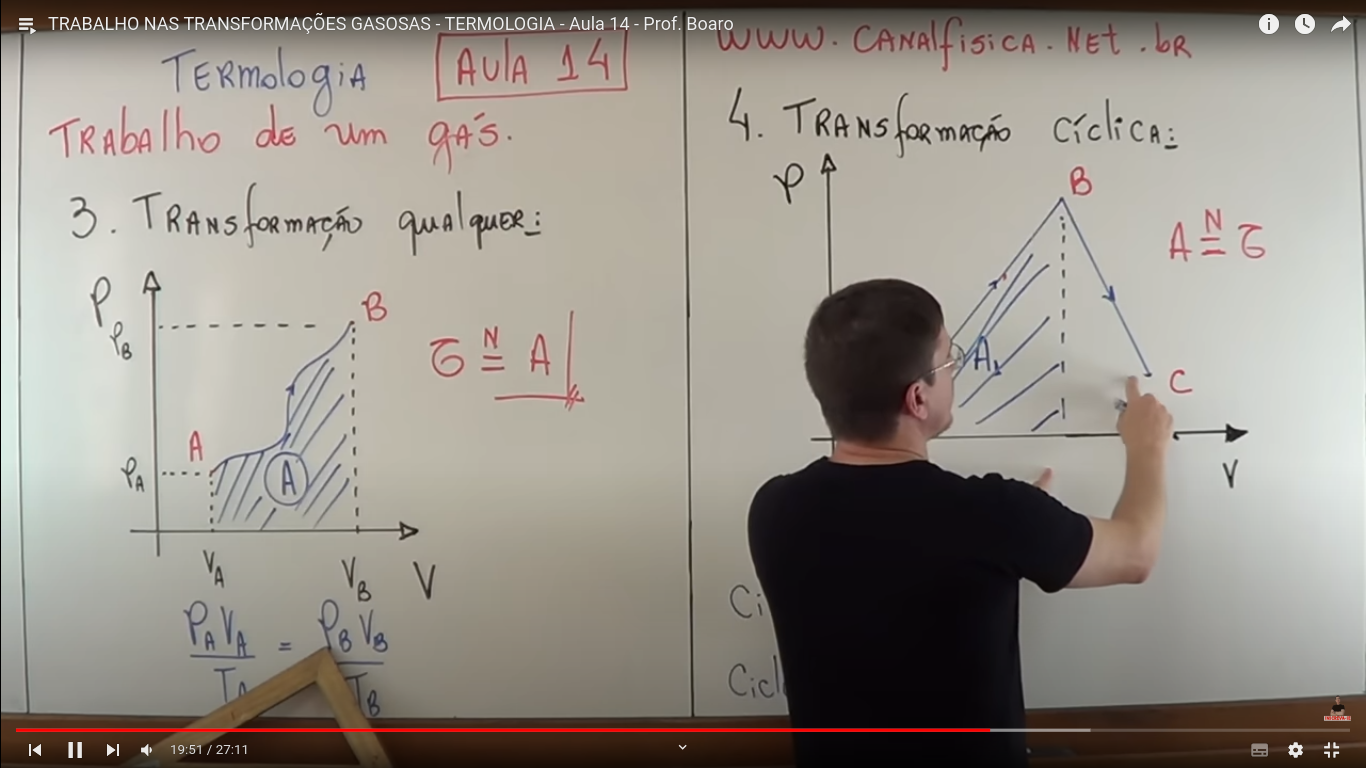 TRABALHO NAS TRANSFORMAÇÕES GASOSAS - TERMOLOGIA - Aula 14 - Prof. Boaro
Termologia
Aula 14
Trabalho de um gás.
3. Transformação qualquer:
P
P_B
B
A
P_A
A
V_A
V_B
V
τ =ᴺ A
P_A V_A / T_A = P_B V_B / T_B
www.canalfisica.net.br
4. Transformação cíclica:
P
B
A =ᴺ τ
A₁
C
V
19:51 / 27:11